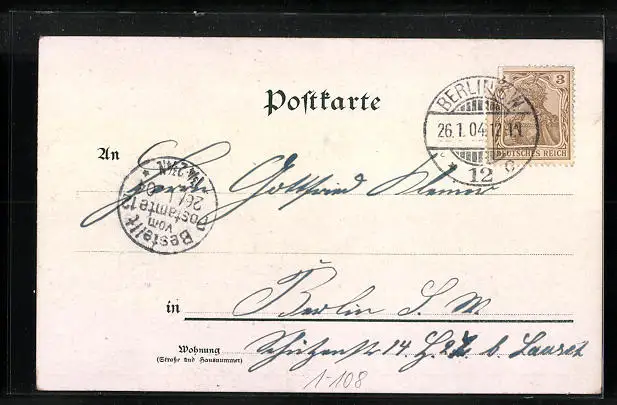 Postkarte
BERLIN S.W.
26.1.04.12-1N
12 c.
3
DEUTSCHES REICH
An Herrn Gottfried Klemm
Bestellt
vom
Postamte 12
26/1
1¼-2½N
in Berlin S. W.
Wohnung
(Straße und Hausnummer)
Schützenstr 14. H. b.
1-108